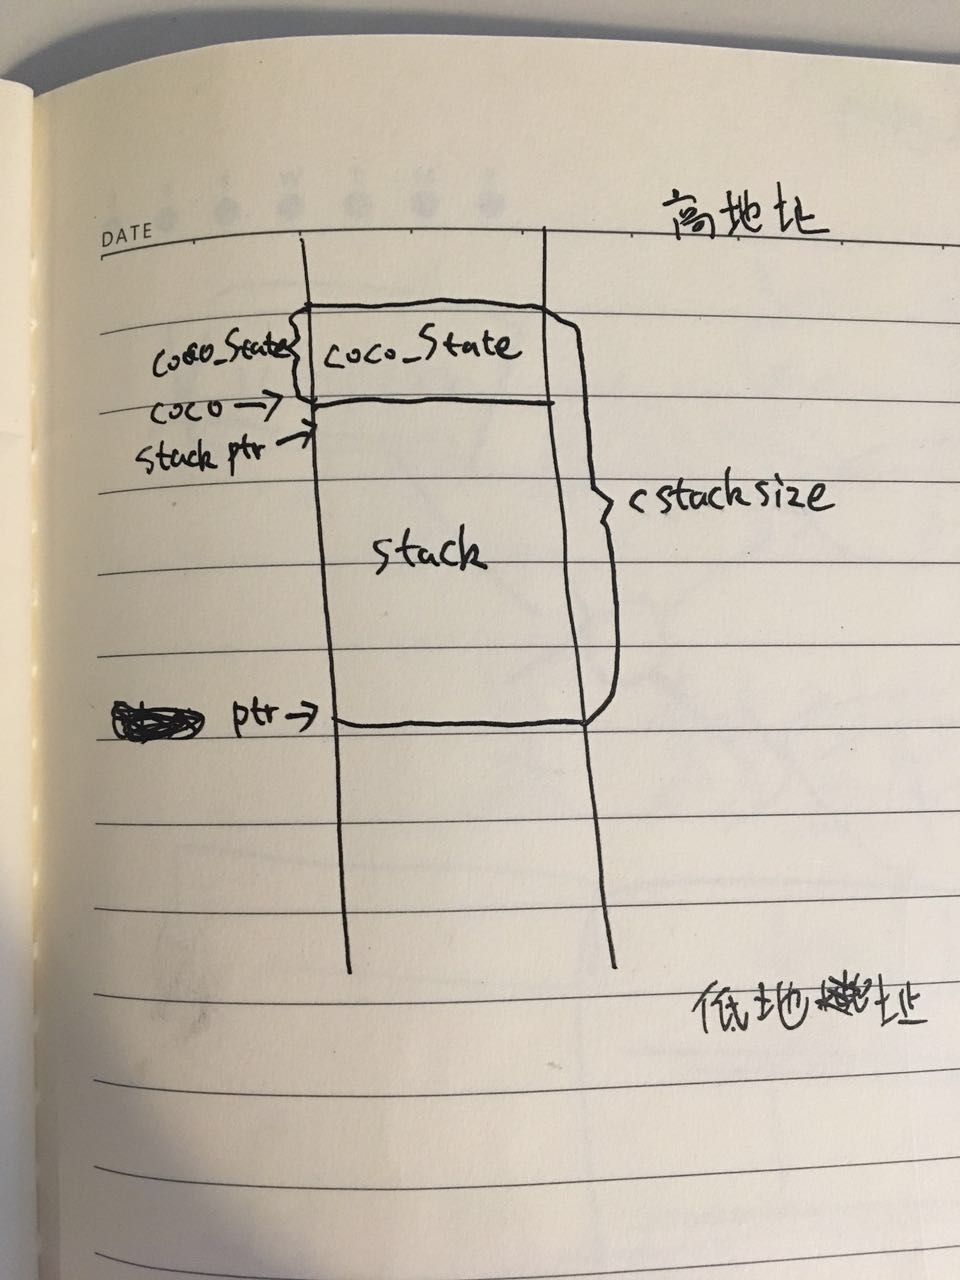 高地址
DATE
coco_State
coco_State
coco
stack ptr
cstacksize
stack
ptr
低地址